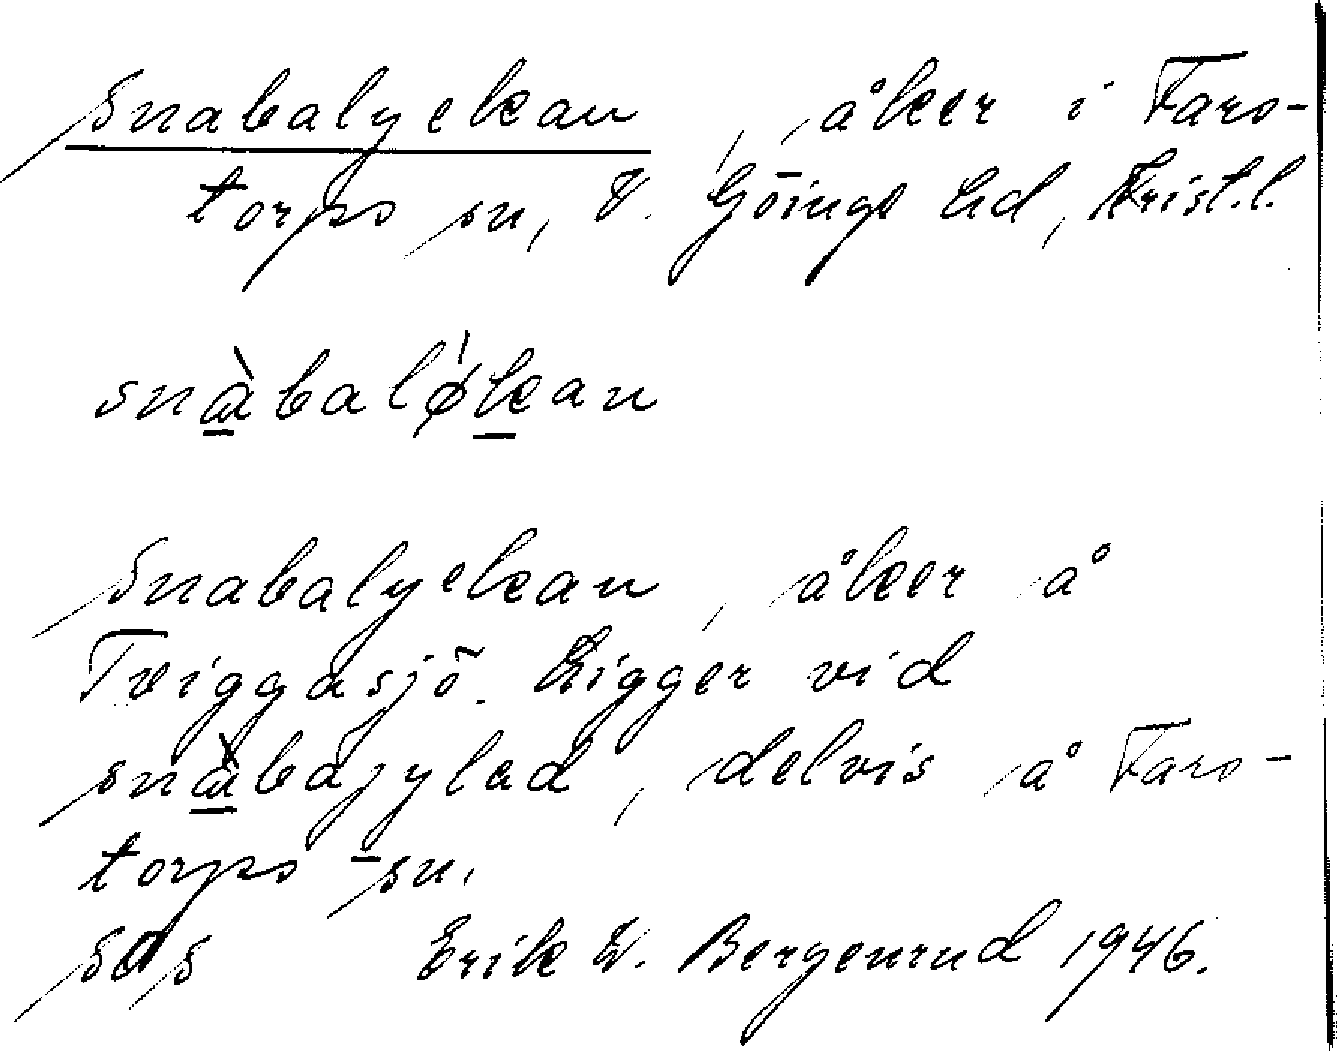 Snabalyckan, åker i Fars-
torps sn, V. Göinge hd, Krist.l.
snàbalǿkan
Snabalyckan, åker å
Tviggasjö. Ligger vid
snàbagylad, delvis å Fars-
torps sn.
Erik W. Bergenrud 1946.